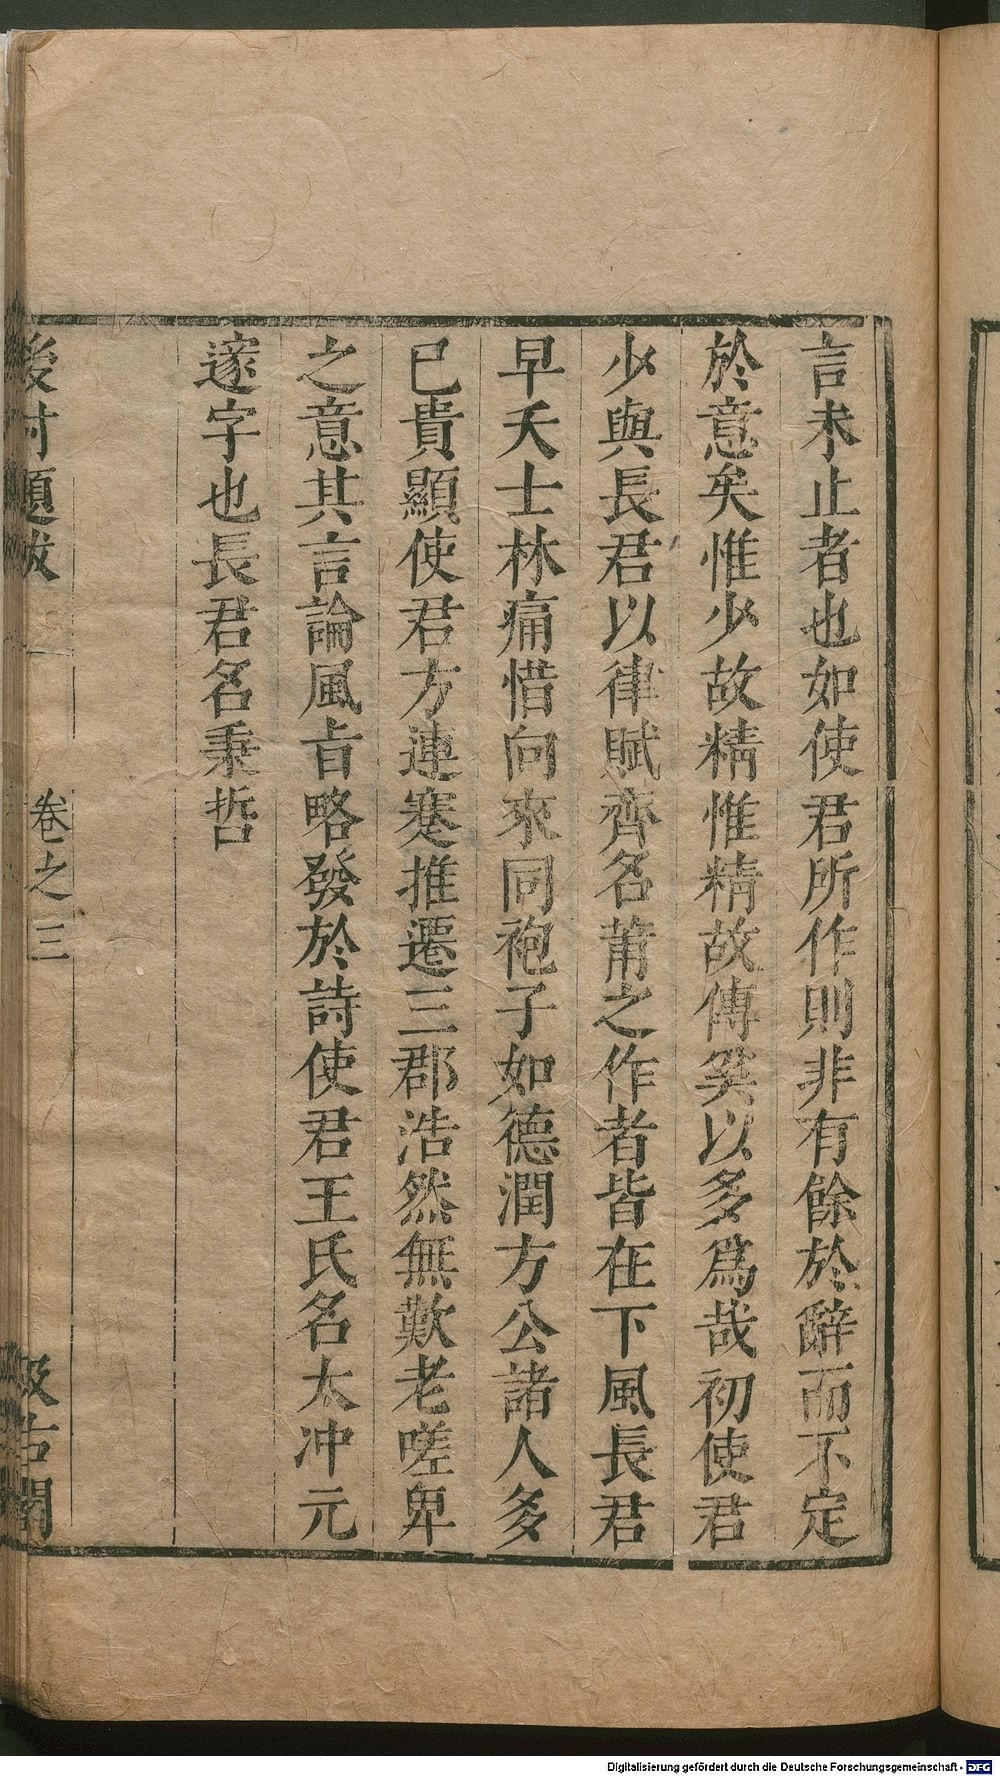 言未止者也如使君所作則非有餘於辭而不定
於意矣惟少故精惟精故傳奚以多爲哉初使君
少與長君以律賦齊名莆之作者皆在下風長君
早夭士林痛惜向來同袍子如德潤方公諸人多
已貴顯使君方連蹇推遷三郡浩然無歎老嗟卑
之意其言論風旨略發於詩使君王氏名太冲元
邃字也長君名秉哲
後村題跋
卷之三
汲古閣
Digitalisierung gefördert durch die Deutsche Forschungsgemeinschaft - DFG